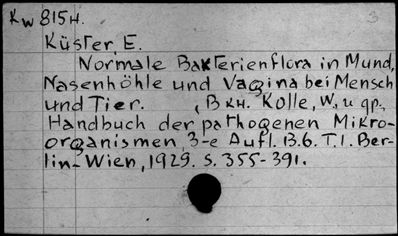 Kw 815н.
3
Küster, E.
Normale Bakterienflora in Mund,
Nasenhöhle und Vagina bei Mensch
und Tier. , В кн. Kolle, W., и др.,
Handbuch der pathogenen Mikro-
organismen, 3-e Aufl. B.6. T.1. Ber-
lin-Wien, 1929. S. 355-391.